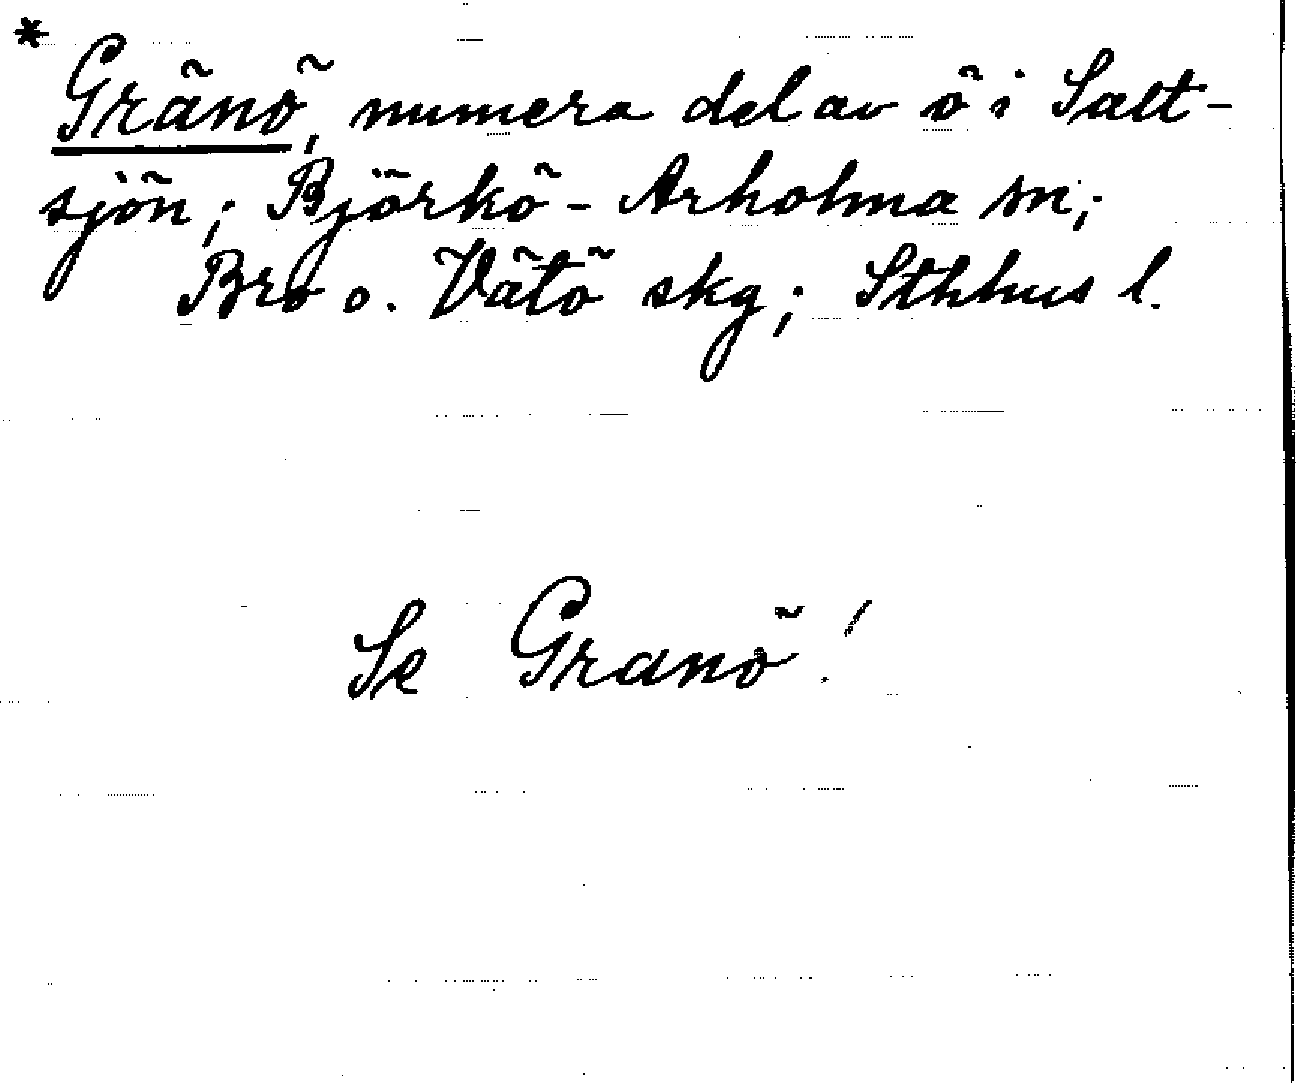 * Gränö, numera del av ö i Salt-
sjön; Björkö-Arholma sn;
Bro o. Vätö skg; Sthhus l.
Se Granö!